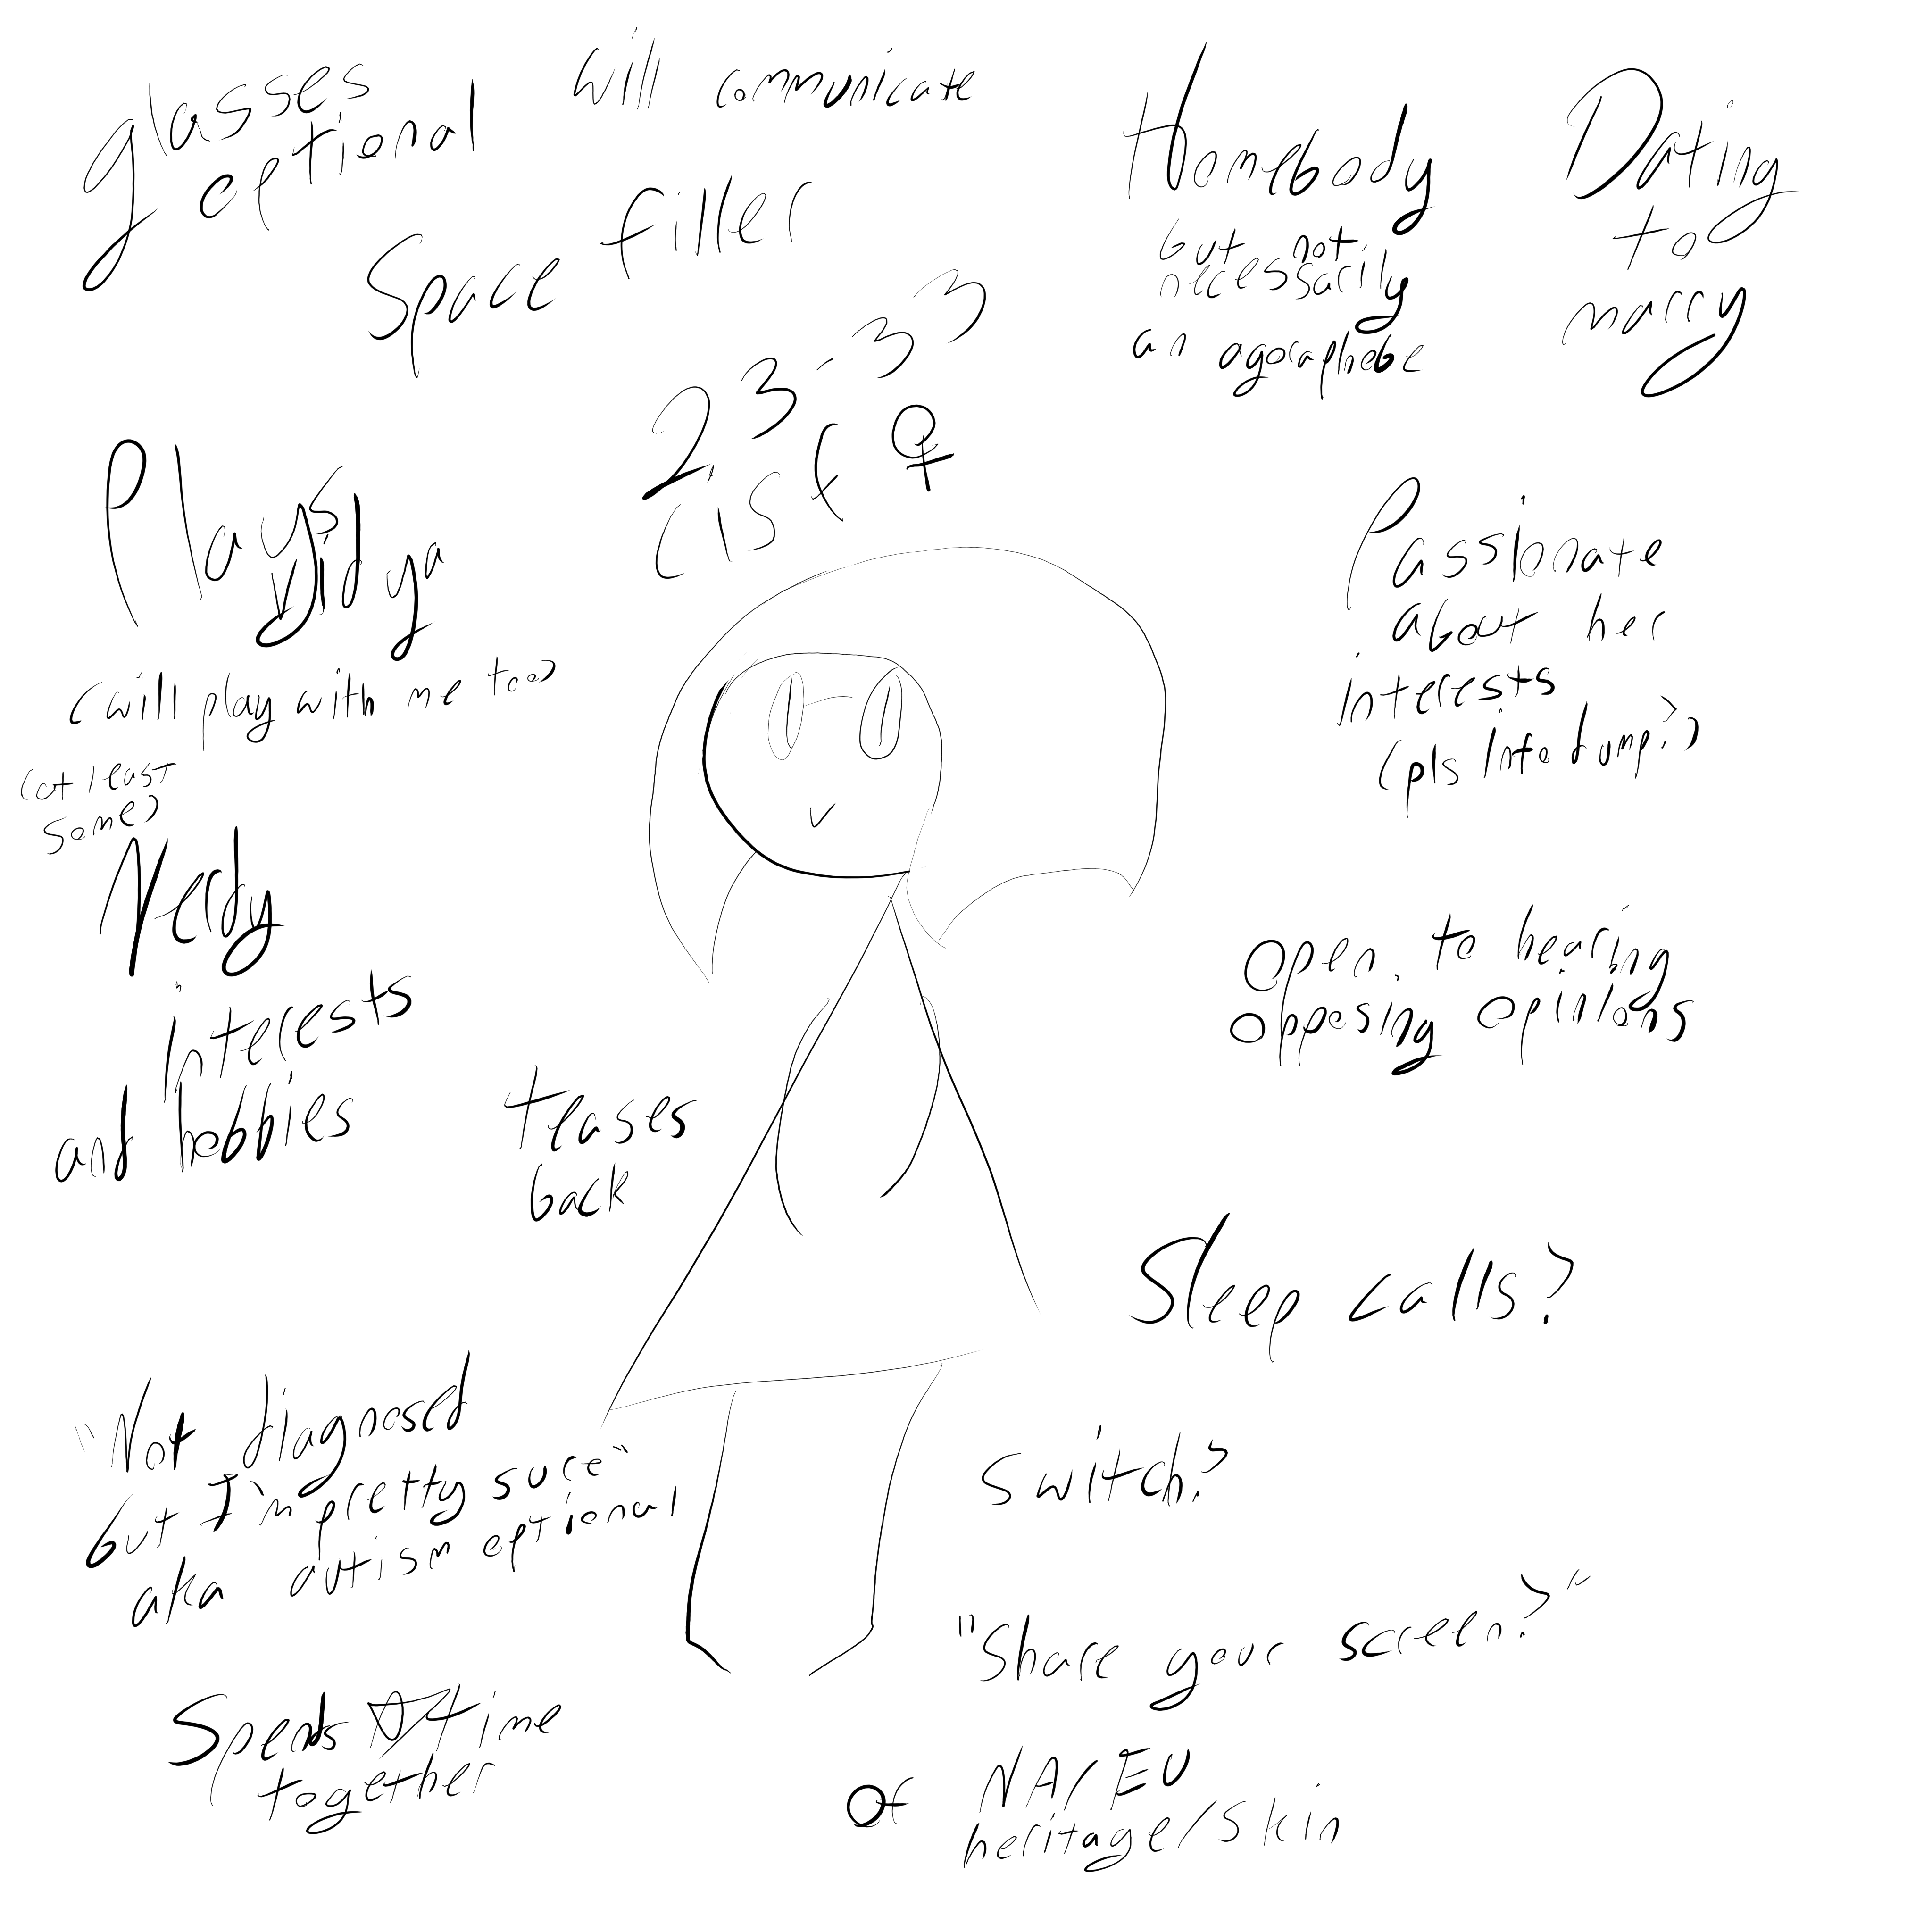 glasses
optional
will communicate
Space filler
Homebody
but not
necessarily
an agoraphobe
Dating
to
marry
23-33
Cis (♀
Plays
Vidya
(will play with me too)
(at least
some)
Passinate
about her
interests
(pls Info dump?)
Nerdy
interests
and hobbies
Open to hearing
opposing opinions
teases
back
Sleep calls?
"Not diagnosed
but I'm pretty sure"
aka autism optional
switch?
"Share your screen?"
Spends time
together
Of NA/EU
heritage/skin